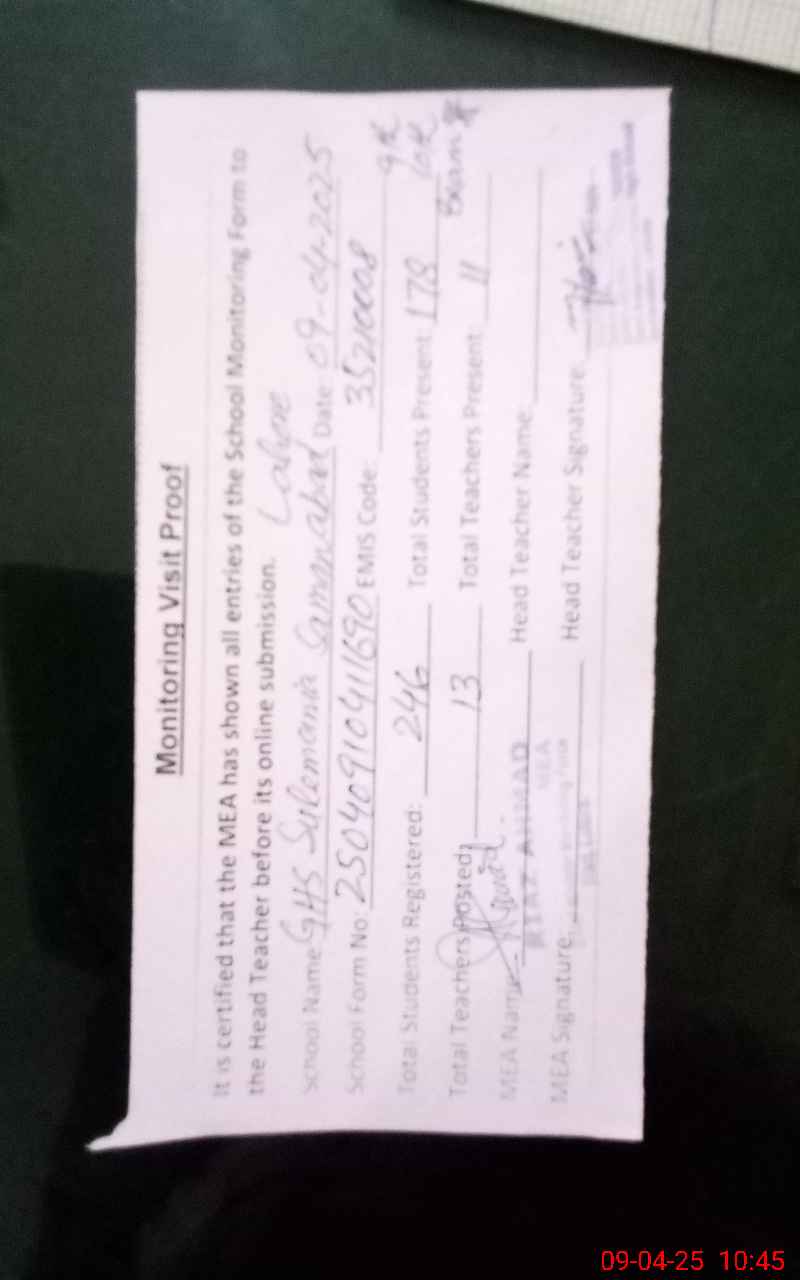 Monitoring Visit Proof
It is certified that the MEA has shown all entries of the School Monitoring Form to
the Head Teacher before its online submission. Lahore
School Name: GHS Sulemania Samanabad Date: 09-04-2025
School Form No: 25040910411690 EMIS Code: 35210008
Total Students Registered: 246 Total Students Present: 178 9th 10th Exam
Total Teachers Posted: 13 Total Teachers Present: 11
MEA Name: RIAZ AHMAD Head Teacher Name:
MEA
MEA Signature: Head Teacher Signature:
09-04-25 10:45